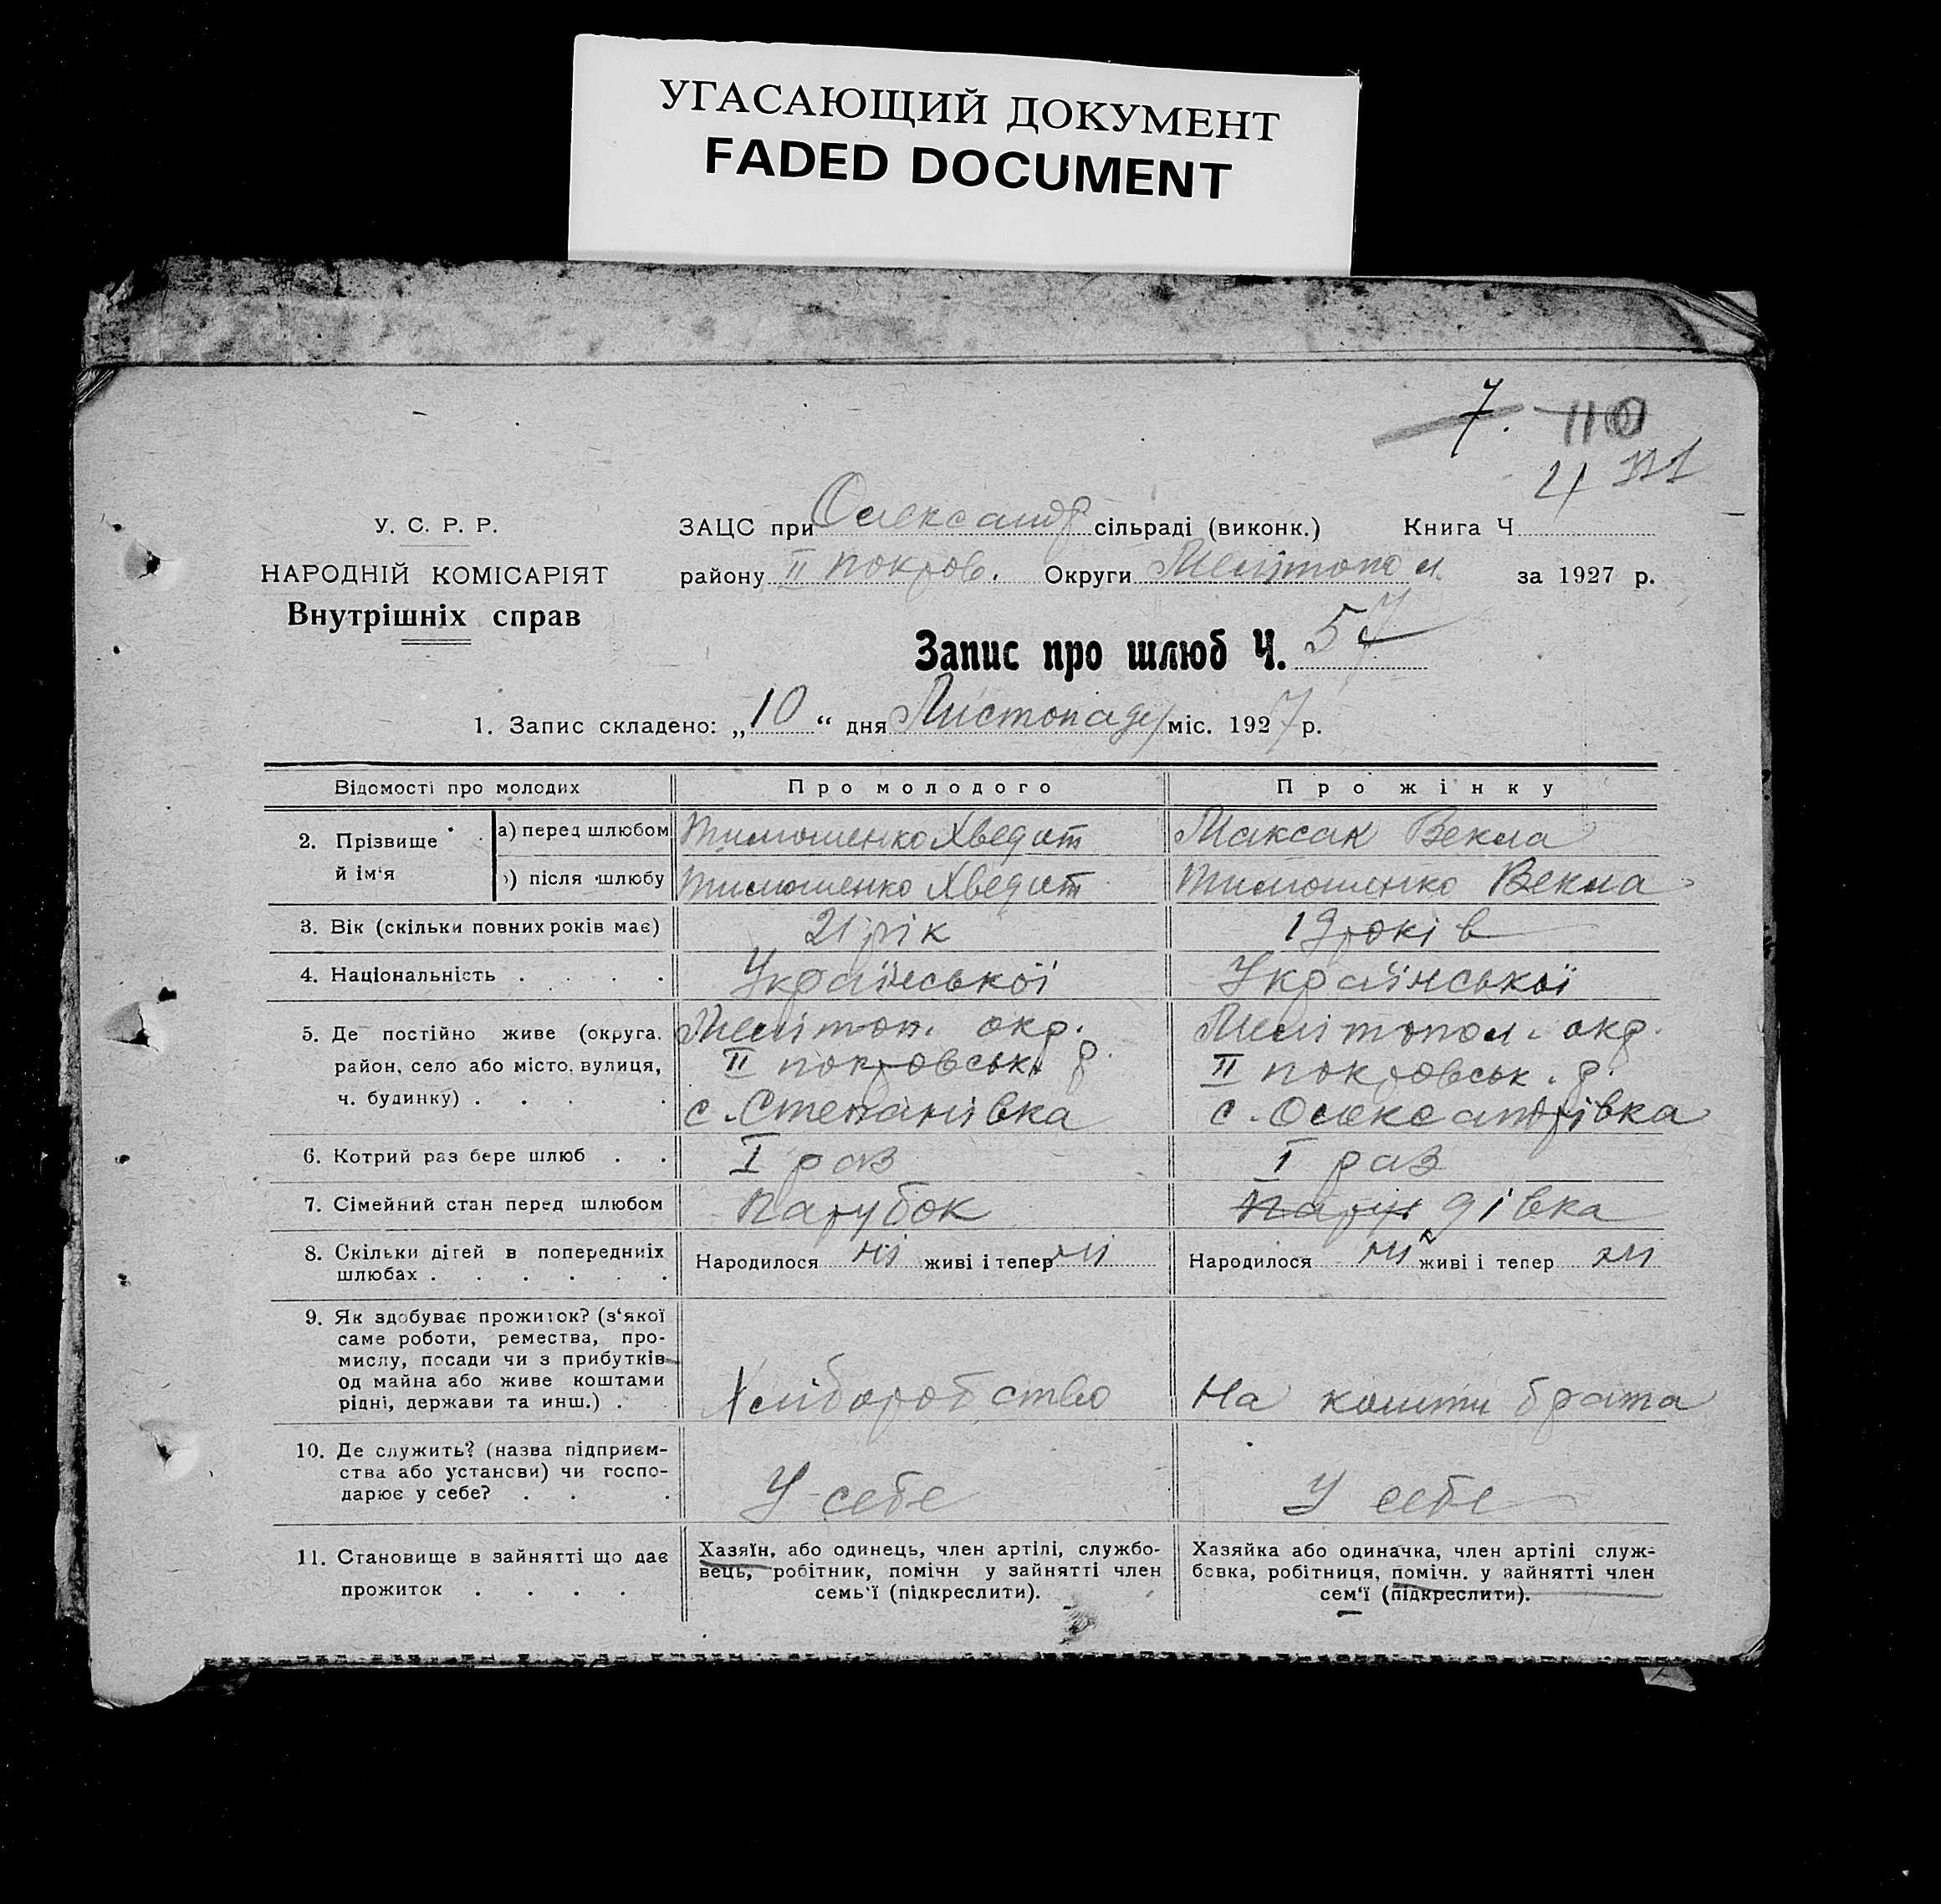 УГАСАЮЩИЙ ДОКУМЕНТ
FADED DOCUMENT
7. 110
4
У. С. Р. Р.
НАРОДНІЙ КОМІСАРІЯТ
Внутрішніх справ
ЗАЦС при Олександр сільраді (виконк.) Книга Ч
району II покров. Округи Мелітопол. за 1927 р.
Запис про шлюб Ч. 57
1. Запис складено: „10“ дня Листопаду міс. 1927 р.
Відомості про молодих Про молодого Про жінку
2. Прізвище й ім‘я
а) перед шлюбом Тимошенко Хведит Максак Векла
б) після шлюбу Тимошенко Хведит Тимошенко Векла
3. Вік (скільки повних років має) 21 рік 19 років
4. Національність Української Української
5. Де постійно живе (округа, Меліто­п. окр. Мелітопол. окр.
район, село або місто, вулиця, II покровськ. р. II покровськ. р.
ч. будинку) с. Степанівка с. Олександрівка
6. Котрий раз бере шлюб I раз I раз
7. Сімейний стан перед шлюбом Парубок дівка
8. Скільки дітей в попередниіх Народилося ні живі і тепер ні Народилося ні живі і тепер ні
шлюбах
9. Як здобуває прожиток? (з‘якої
саме роботи, ремества, про-
мислу, посади чи з прибутків
од майна або живе коштами
рідні, держави та инш.) Хліборобство На кошти брата
10. Де служить? (назва підприєм-
ства або установи) чи госпо-
дарює у себе? У себе У себе
11. Становище в зайнятті що дає
прожиток
Хазяїн, або одинець, член артілі, службо-
вець, робітник, помічн у зайнятті член
семь‘ї (підкреслити).
Хазяйка або одиначка, член артілі служ-
бовка, робітниця, помічн. у зайнятті член
сем‘ї (підкреслити).